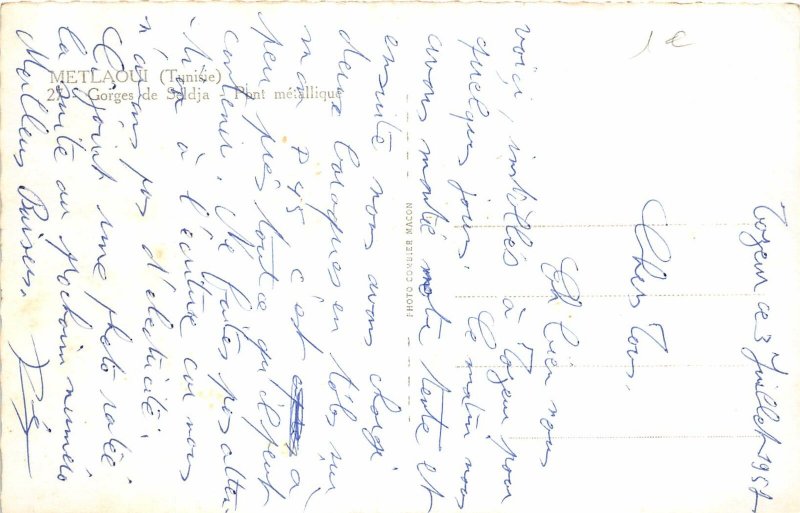 METLAOUI (Tunisie)
Gorges de Seldja - Pont métallique
PHOTO COMBIER MACON
Tozeur ce 3 Juillet 1957
Chers Tous,
Eh bien nous
voici, installés à Tozeur pour
quelques jours. Ce matin nous
avons monté notre tente et
ensuite nous avons chargé
deux baraques en tôles sur
P 45 c'est à
peu près tout ce qu'il peut
contenir. Ne faites pas atten-
tion à l'écriture car nous
n'avons pas d'électricité.
Ci joint une photo ratée
la suite au prochain numéro
Meilleurs Baisers.